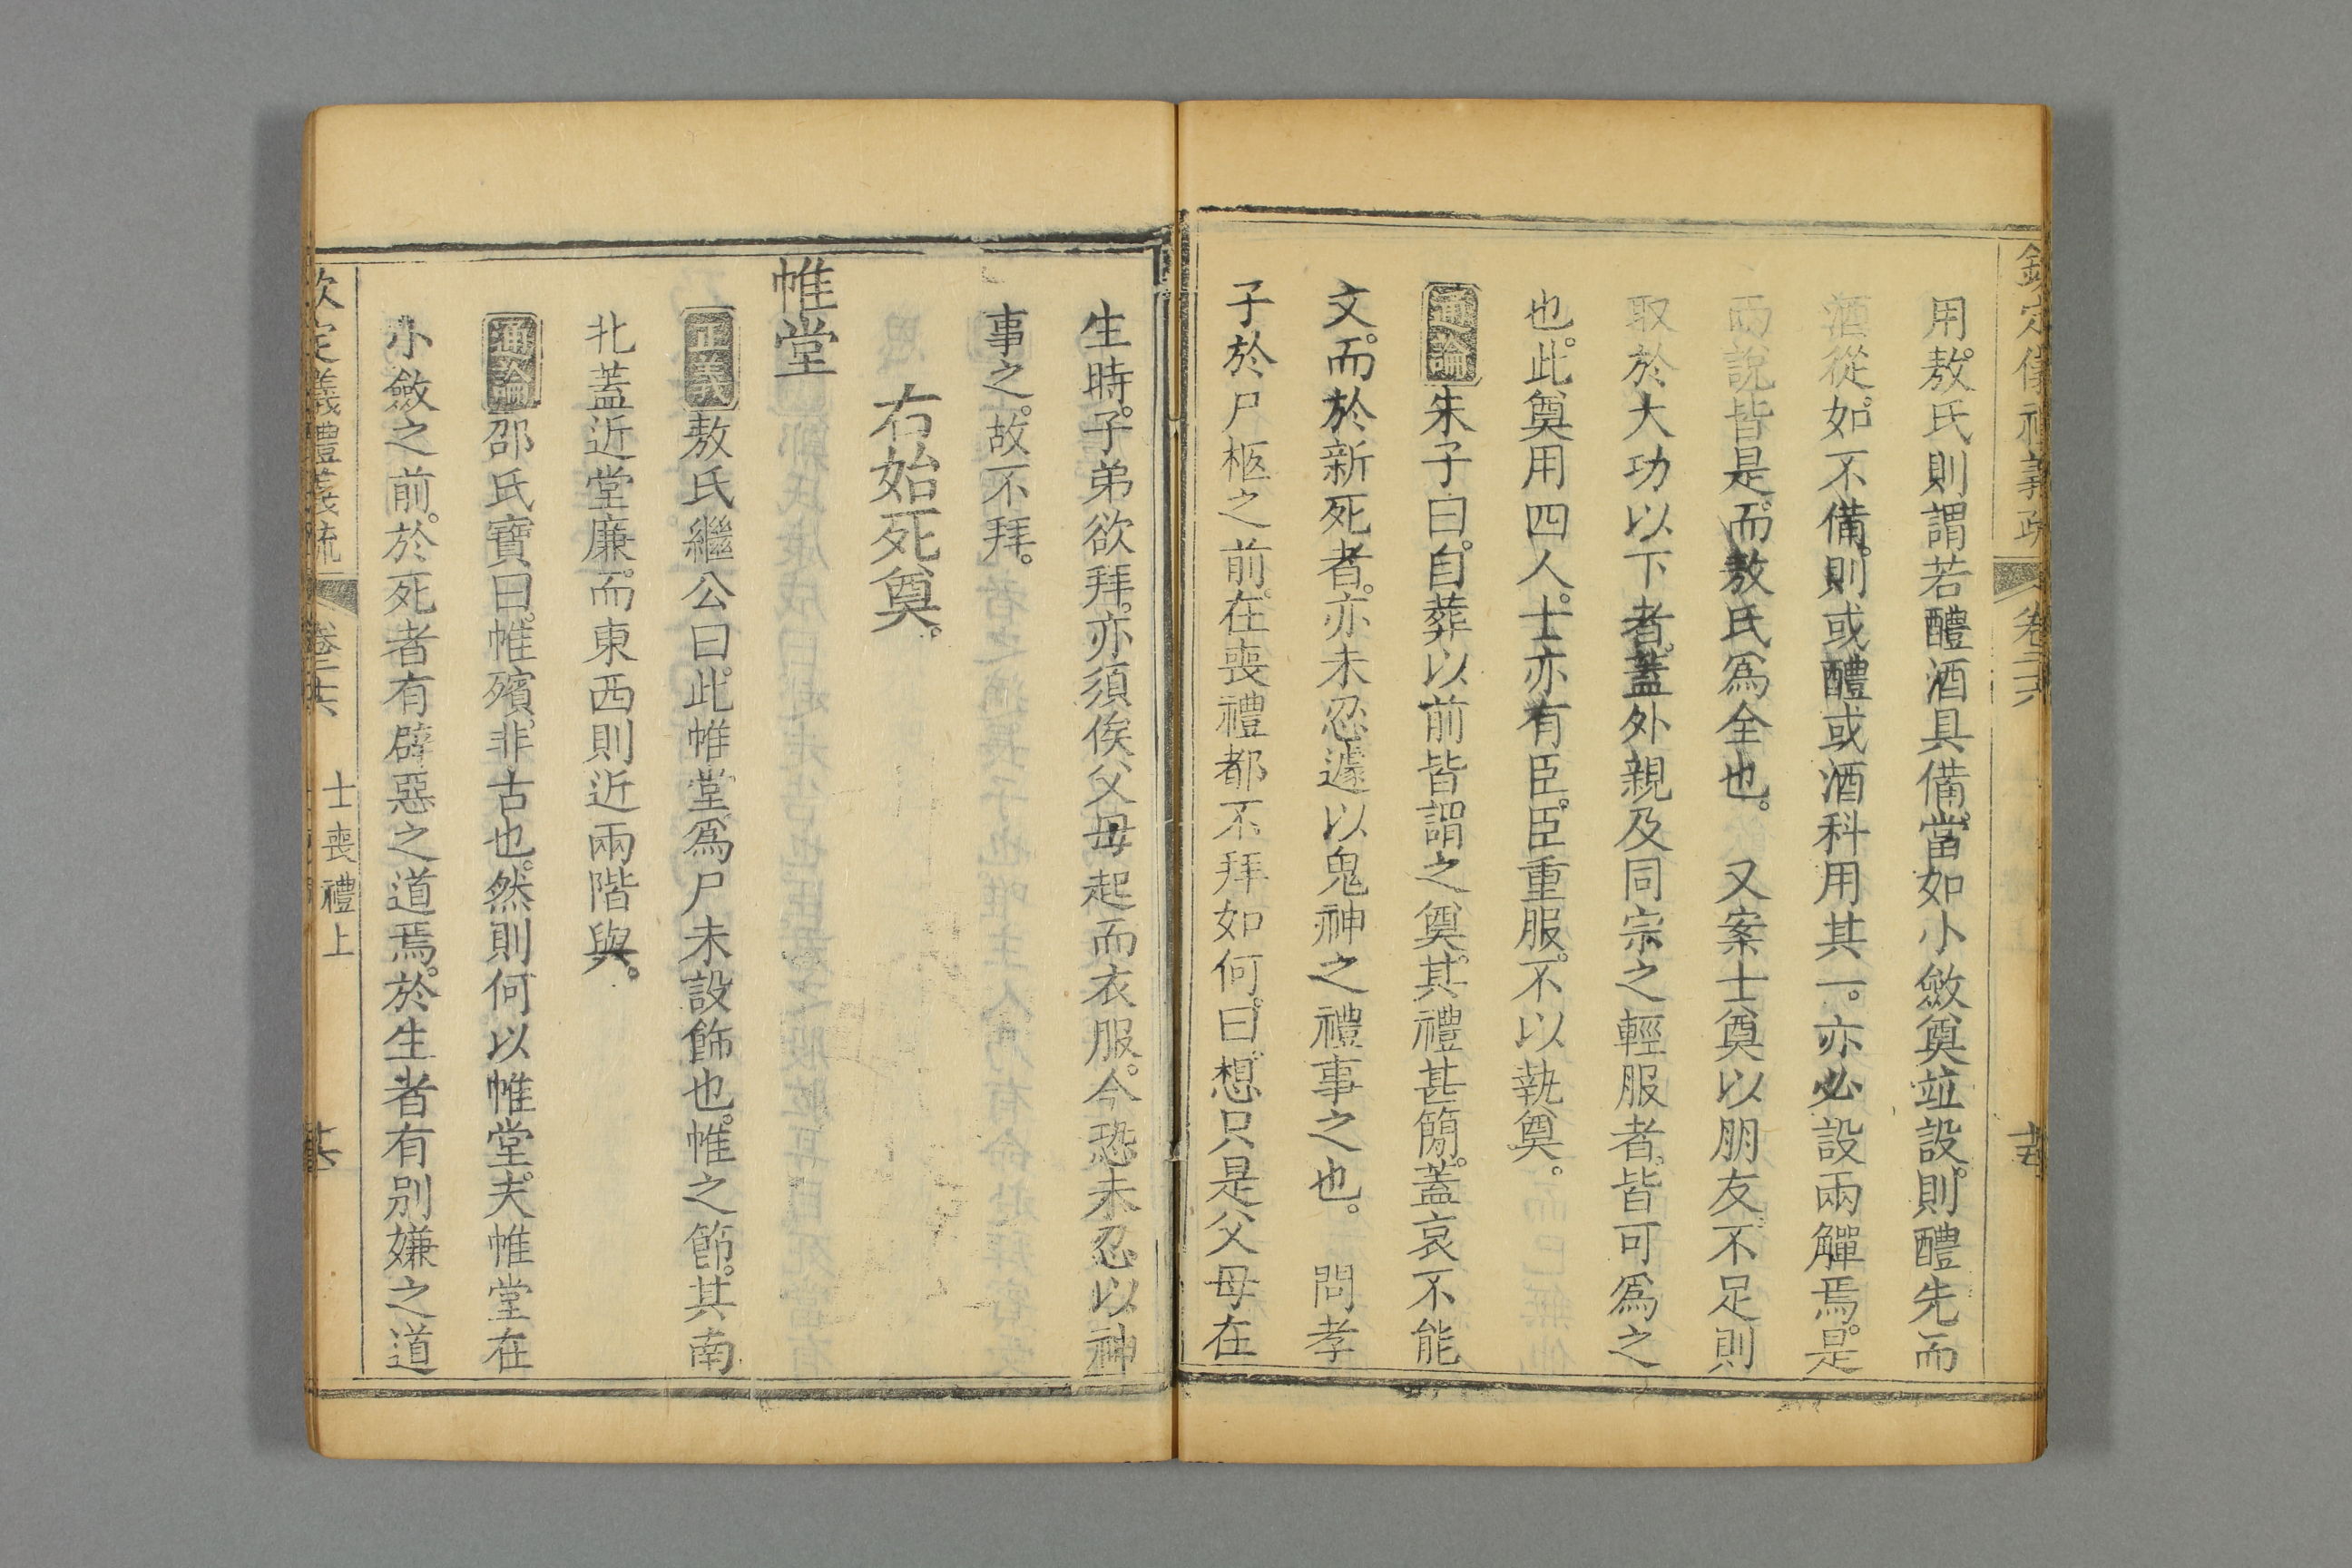 欽定儀禮義疏 卷二十六
用敖氏則謂若醴酒具備當如小斂奠竝設則醴先而
酒從如不備則或醴或酒科用其一。亦必設兩觶焉是
兩說皆是而敖氏爲全也。 又案士奠以朋友不足則
取於大功以下者蓋外親及同宗之輕服者皆可爲之
也。此奠用四人。士亦有臣。臣重服。不以執奠。
通論朱子曰。自葬以前皆謂之奠。其禮甚簡。蓋哀不能
文。而於新死者。亦未忍遽以鬼神之禮事之也。 問孝
子於尸柩之前。在喪禮都不拜如何。曰。想只是父母在
生時。子弟欲拜。亦須俟父母起而衣服。今恐未忍以神
事之。故不拜。
右始死奠。
帷堂
正義敖氏繼公曰。此帷堂爲尸未設飾也。帷之節。其南
北蓋近堂廉。而東西則近兩階與。
通論邵氏寶曰。帷殯。非古也。然則何以帷堂。夫帷堂在
小斂之前。於死者有辟惡之道焉。於生者有別嫌之道
欽定儀禮義疏 卷二十六 士喪禮上